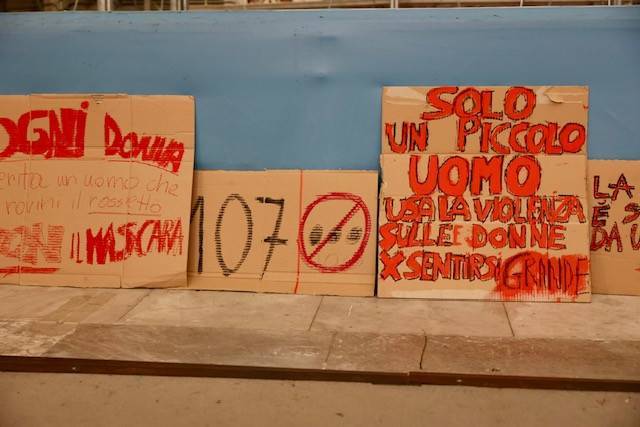 OGNI DONNA
erita un uomo che
rovini il rossetto
NON IL MASCARA
107
SOLO
UN PICCOLO
UOMO
USA LA VIOLENZA
SULLE DONNE
X SENTIRSI GRANDE
LA
È S
DA U